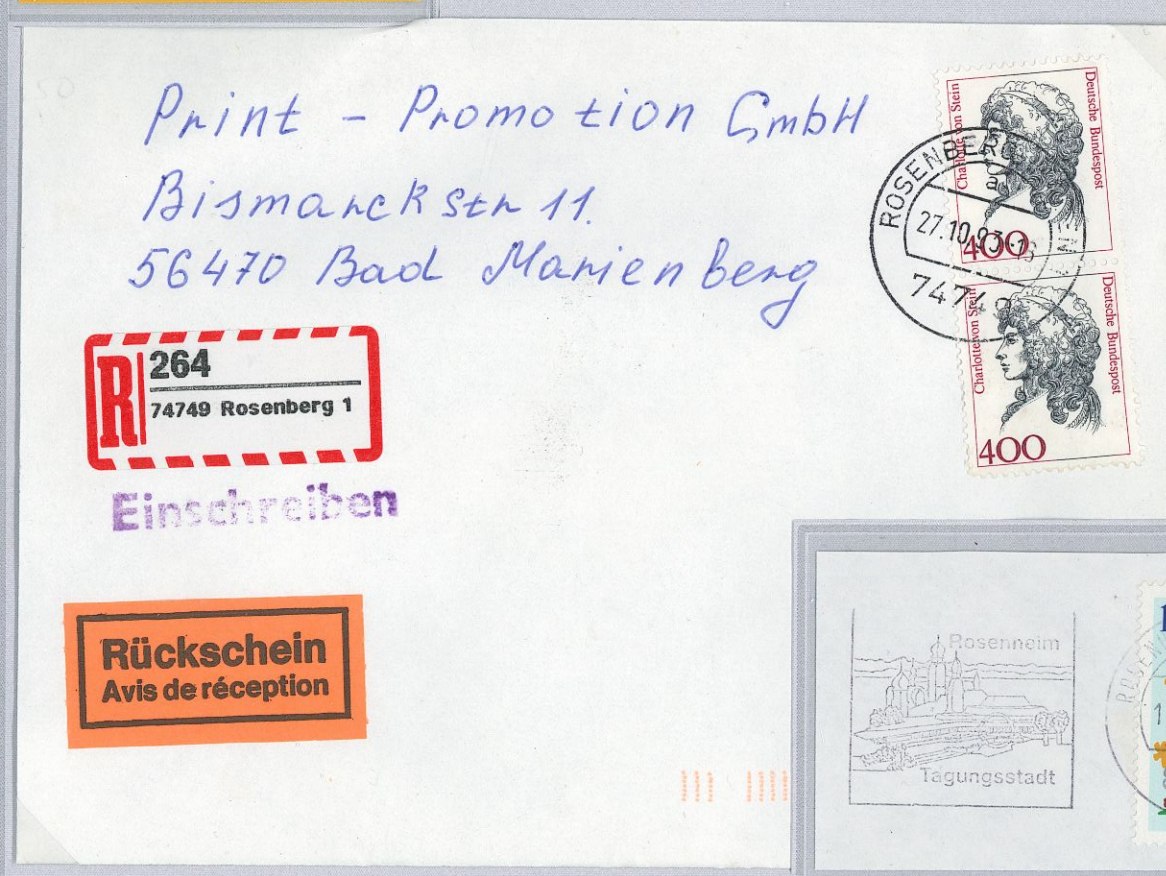 Print - Promotion GmbH
Bismarckstr 11.
56470 Bad Marienberg
Charlotte von Stein
Deutsche Bundespost
400
ROSENBERG
a
27.10.93-16
74749
Charlotte von Stein
Deutsche Bundespost
400
R
264
74749 Rosenberg 1
Einschreiben
Rückschein
Avis de réception
Rosenheim
Tagungsstadt